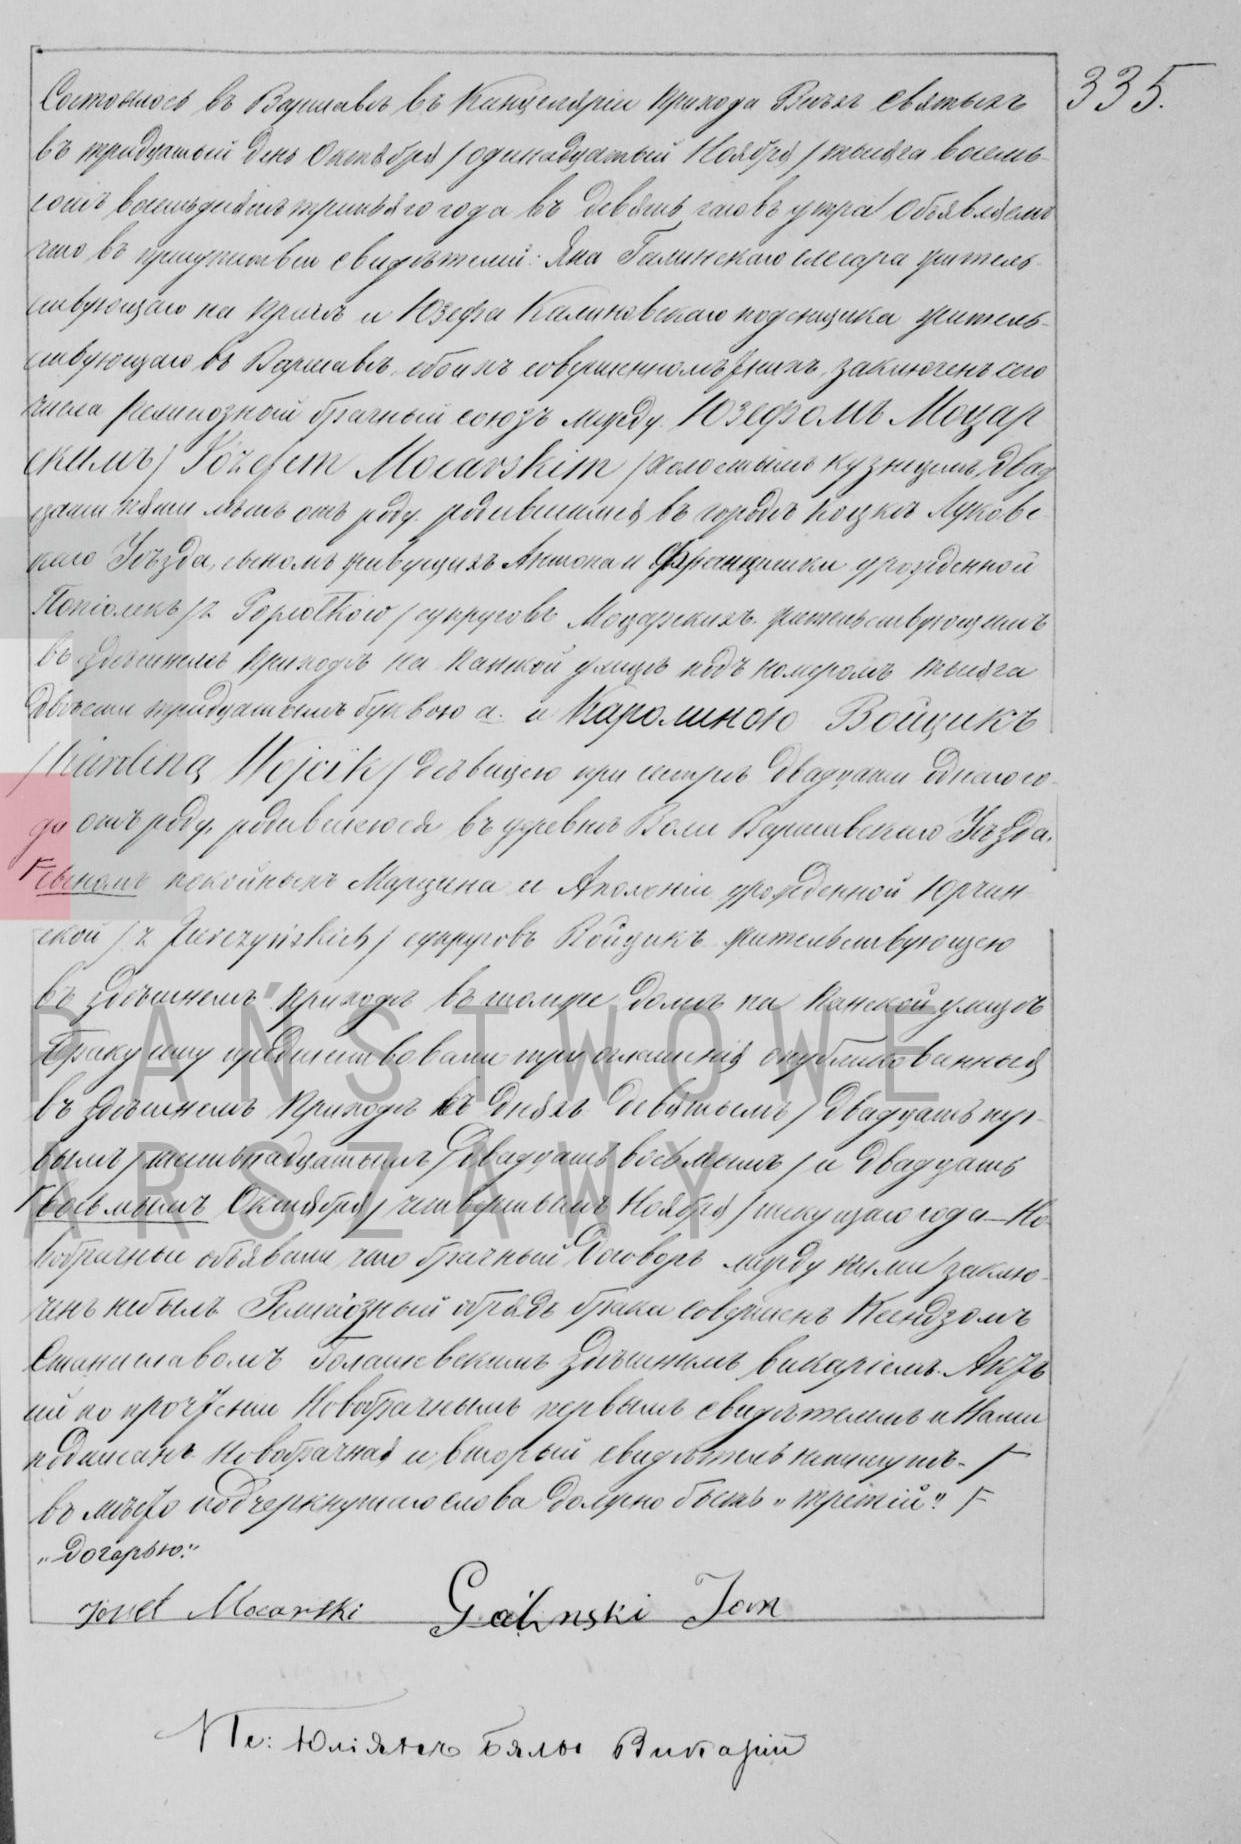 335.
Состоялось въ Варшавѣ въ Канцеляріи прихода Всѣхъ Святыхъ
въ тридцатый день Октября /одинадцатый Ноября/ тысяча восемь-
сотъ восемьдесятъ третьяго года въ девять часовъ утра. Объявляемъ
что въ присутствіи свидѣтелей: Яна Галинскаго слесаря житель-
ствующаго на Прагѣ и Юзефа Калиновскаго поденщика житель-
ствующаго въ Варшавѣ, обоихъ совершеннолѣтнихъ, заключенъ сего
числа религіозный брачный союзъ между Юзефомъ Моцар
скимъ / Józefem Mocarskim / холостымъ кузнецомъ, двад
цати пяти лѣтъ отъ роду, родившимся въ городѣ Коцкѣ Луковс-
каго Уѣзда, сыномъ живущихъ Антона и Францишки урожденной
Попіолекъ / супруговъ Моцарскихъ жительствующимъ
въ здѣшнемъ приходѣ на Панской улицѣ подъ номеромъ тысяча
двѣсти тридцатымъ буквою а. и Каролиною Войцикъ
/ Karoliną Wojcik / дѣвицею при сестрѣ двадцати одного го-
да отъ роду, родившеюся въ деревнѣ Воли Варшавскаго Уѣзда,
Г сыномъ покойныхъ Марцина и Аполоніи урожденной Юрчин-
ской / z Jurczyńskich / супруговъ Войцикъ жительствующею
въ здѣшнемъ приходѣ въ томже домѣ на Панской улицѣ
Браку сему предшествовали три оглашенія опубликованныя
въ здѣшнемъ приходѣ въ дняхъ девятымъ / двадцать пер-
вымъ / шестнадцатымъ / двадцать восьмымъ / и двадцать
Г восьмымъ Октября / четвертымъ Ноября / текущаго года — Но-
вобрачные объявили что брачный договоръ между ними заклю-
ченъ небылъ Религіозный обрядъ брака совершенъ Ксендзомъ
Станиславомъ Голашевскимъ здѣшнимъ викаріемъ. Актъ
сій по прочтеніи Новобрачнымъ первымъ свидѣтелемъ и Нами
подписанъ Новобрачная и вторый свидѣтель непишутъ. Г
въ мѣсто подчеркнутаго слова должно быть „третій“. F
„дочерью.“
Jozef Mocarski Galinski Jan
Кс: Юліянъ Бялы Викарій
PAŃSTWOWE
ARSZAWY